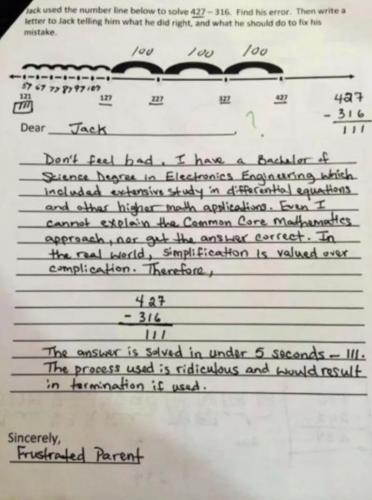 Jack used the number line below to solve 427 – 316. Find his error. Then write a
letter to Jack telling him what he did right, and what he should do to fix his
mistake.
100 100 100
57 67 77 87 97 107
121 127 227 327 427
111
427
- 316
111
Dear Jack,
?
Don't feel bad. I have a Bachelor of
Science Degree in Electronics Engineering which
included extensive study in differential equations
and other higher math applications. Even I
cannot explain the Common Core mathematics
approach, nor get the answer correct. In
the real world, simplification is valued over
complication. Therefore,
427
- 316
111
The answer is solved in under 5 seconds – 111.
The process used is ridiculous and would result
in termination if used.
Sincerely,
Frustrated Parent